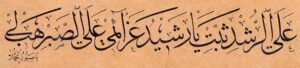 على الرشد ثبت يا رشيد عزائمي على الصبر هب لي